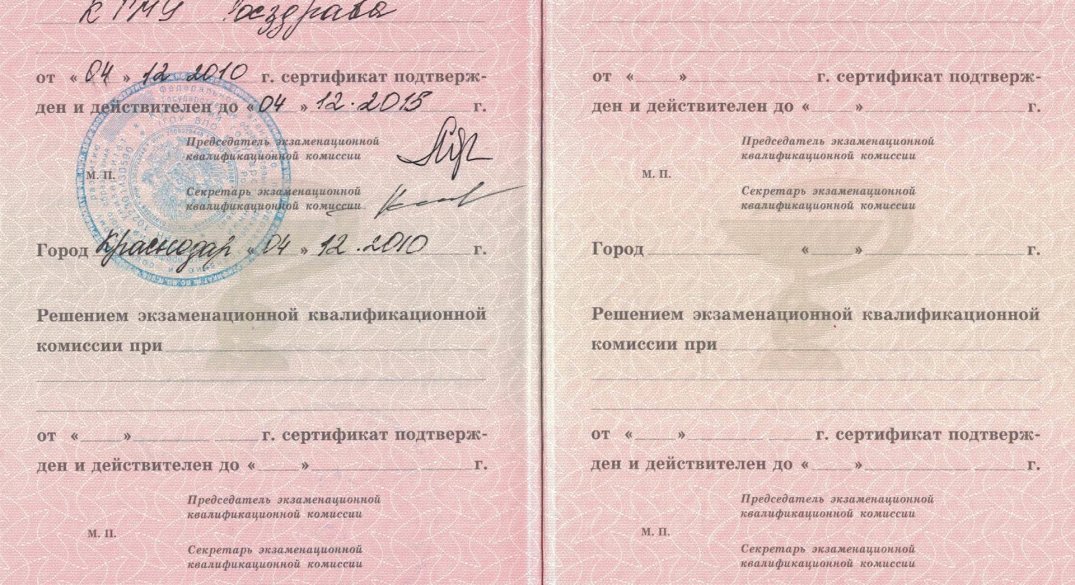 КГМУ Росздрава
от « 04 » 12 2010 г. сертификат подтверж-
ден и действителен до « 04 » 12.2015 г.
Председатель экзаменационной
квалификационной комиссии
М. П.
Секретарь экзаменационной
квалификационной комиссии
Город Краснодар « 04 » 12.2010 г.
Решением экзаменационной квалификационной
комиссии при
от « » г. сертификат подтверж-
ден и действителен до « » г.
Председатель экзаменационной
квалификационной комиссии
М. П.
Секретарь экзаменационной
квалификационной комиссии
от « » г. сертификат подтверж-
ден и действителен до « » г.
Председатель экзаменационной
квалификационной комиссии
М. П.
Секретарь экзаменационной
квалификационной комиссии
Город « » г.
Решением экзаменационной квалификационной
комиссии при
от « » г. сертификат подтверж-
ден и действителен до « » г.
Председатель экзаменационной
квалификационной комиссии
М. П.
Секретарь экзаменационной
квалификационной комиссии